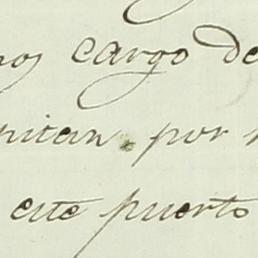 cargo de
pitan, por
este puerto